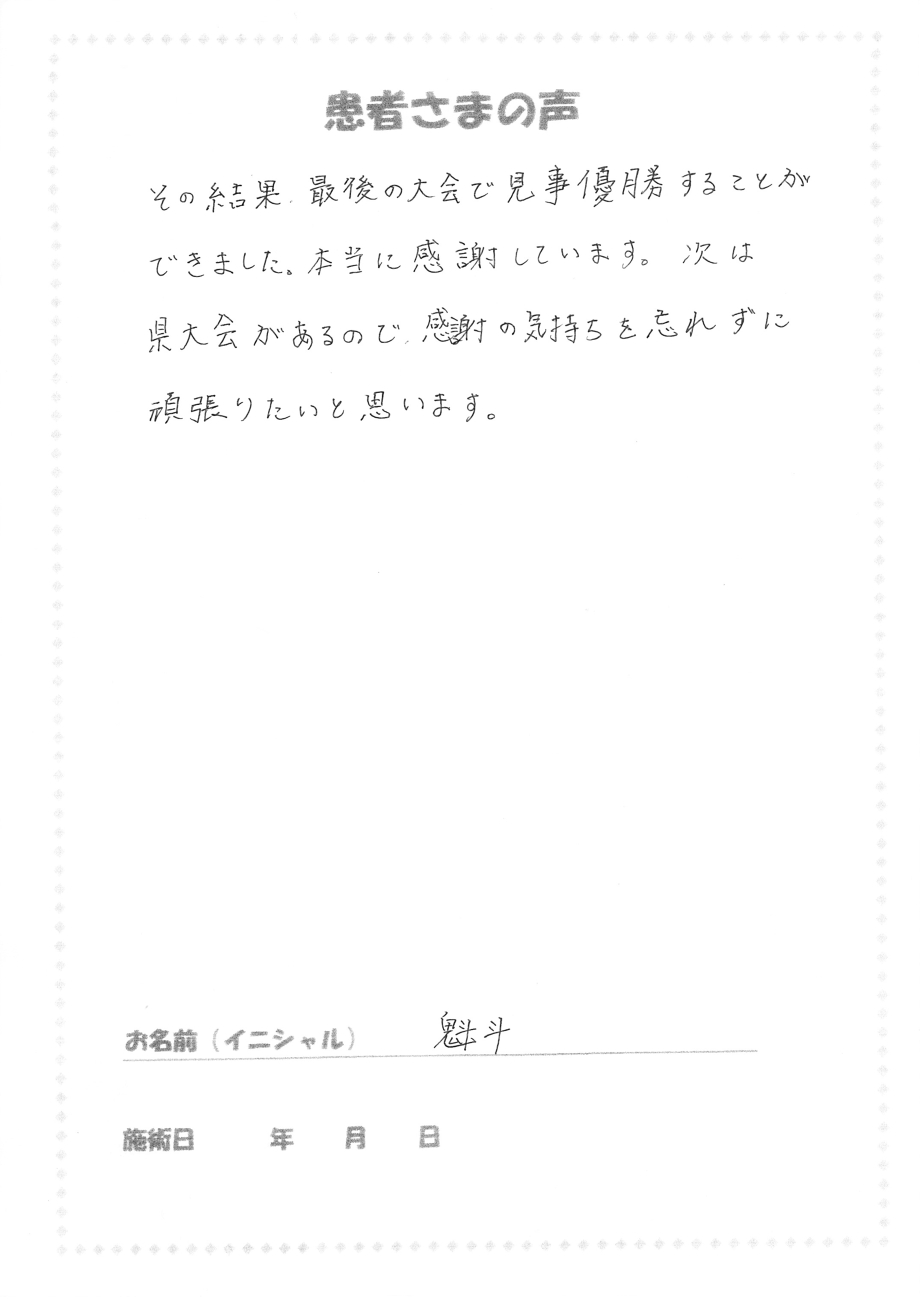 患者さまの声
その結果、最後の大会で見事優勝することが
できました。本当に感謝しています。次は
県大会があるので、感謝の気持ちを忘れずに
頑張りたいと思います。
お名前（イニシャル） 魁斗
施術日 年 月 日